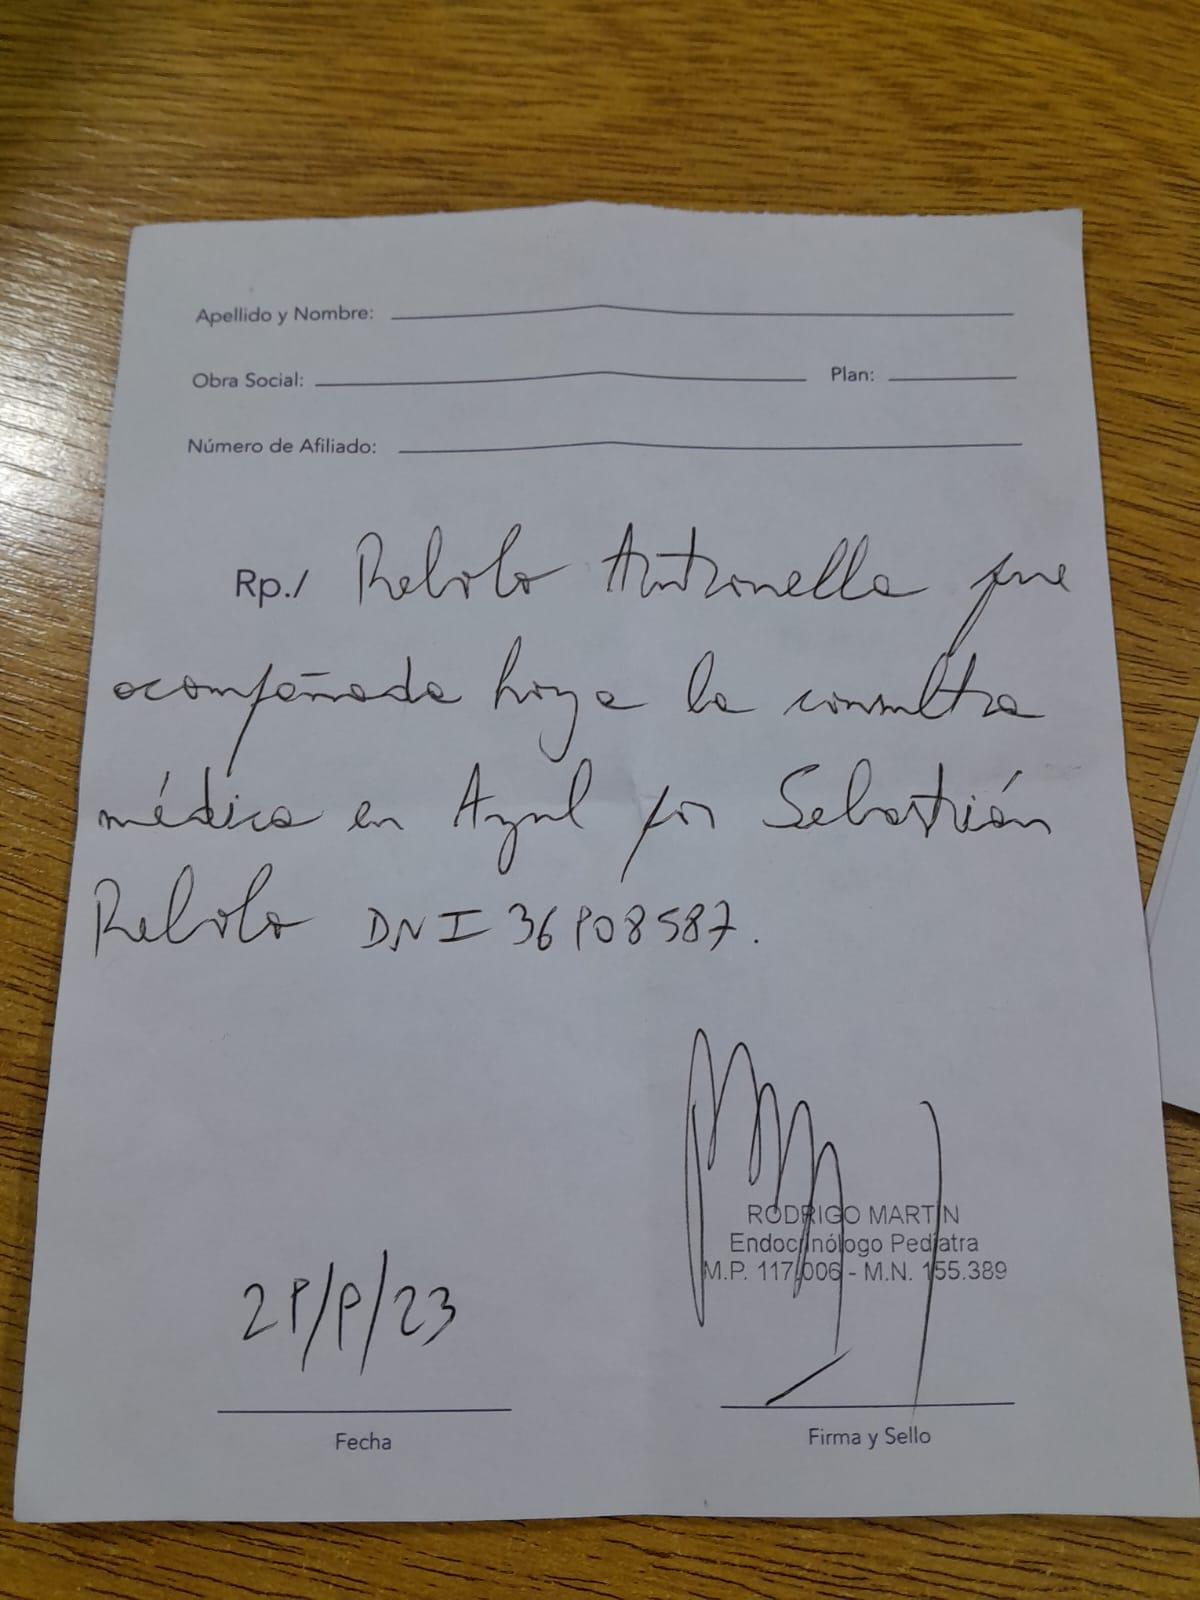 Apellido y Nombre:
Obra Social: Plan:
Número de Afiliado:
Rp./ Rebolo Antonella fue
acompañada hoy a la consulta
médica en Azul por Sebastián
Rebolo DNI 36908587.
29/9/23
RODRIGO MARTÍN
Endocrinólogo Pediatra
M.P. 117.006 - M.N. 155.389
Fecha
Firma y Sello